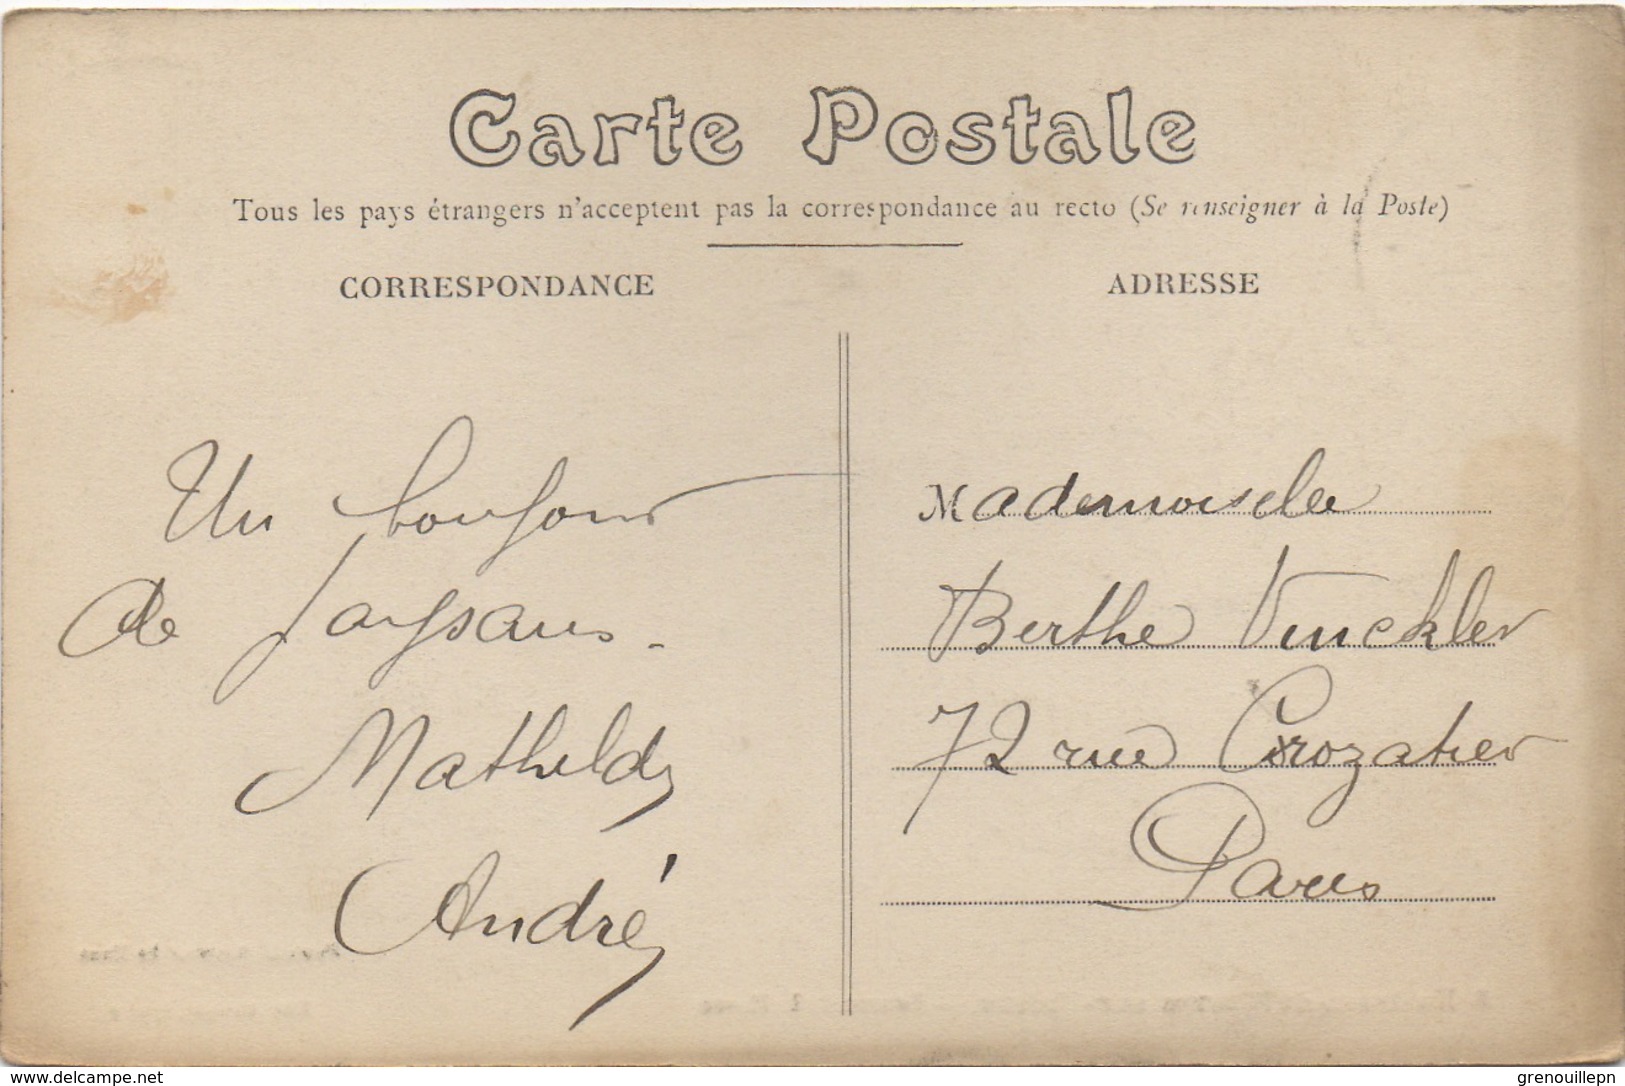 Carte Postale
Tous les pays étrangers n'acceptent pas la correspondance au recto (Se renseigner à la Poste)
CORRESPONDANCE
ADRESSE
Un bonjour
de paysans.
Mathilde
André
Mademoiselle
Berthe Vinckler
72 rue Crozatier
Paris
www.delcampe.net
grenouillepn